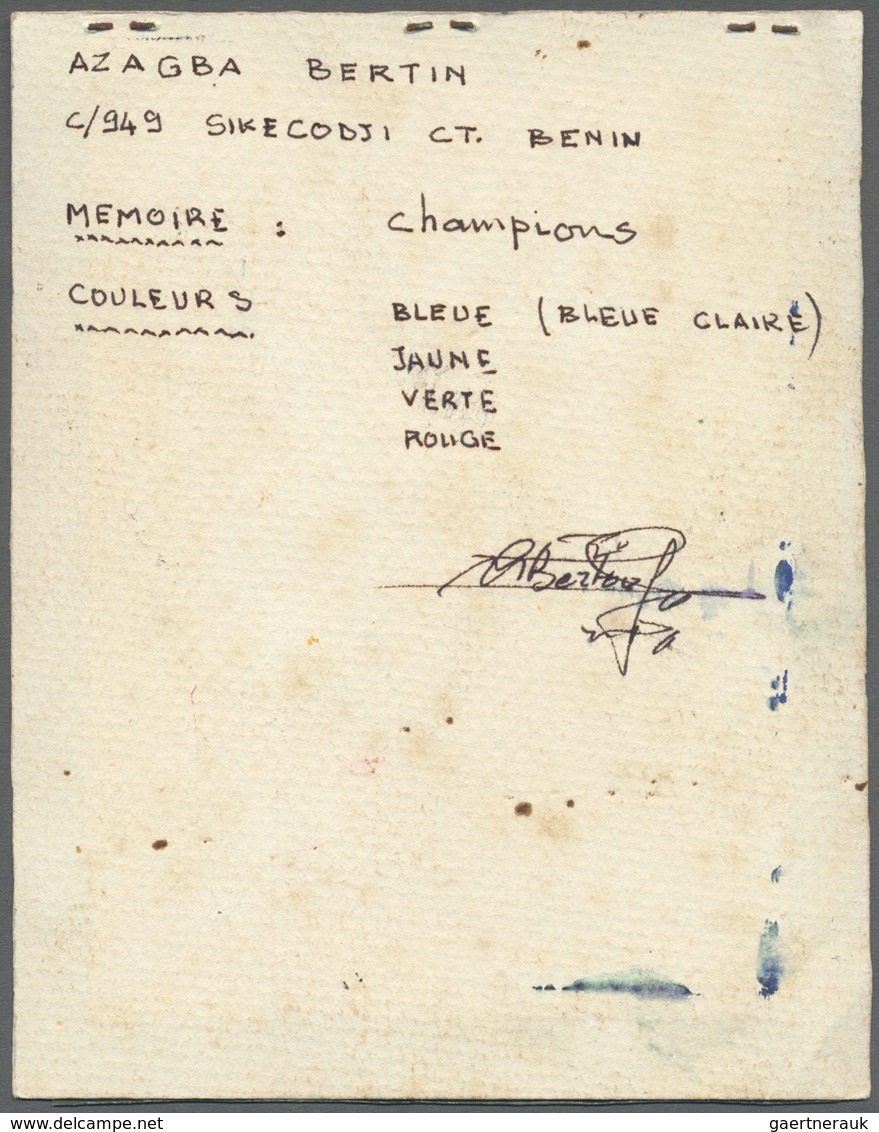 AZAGBA BERTIN
C/949 SIKECODJI CT. BENIN
MEMOIRE : Champions
COULEURS BLEUE (BLEUE CLAIRE)
JAUNE
VERTE
ROUGE
ABertin
delcampe.net
gaertnerauk